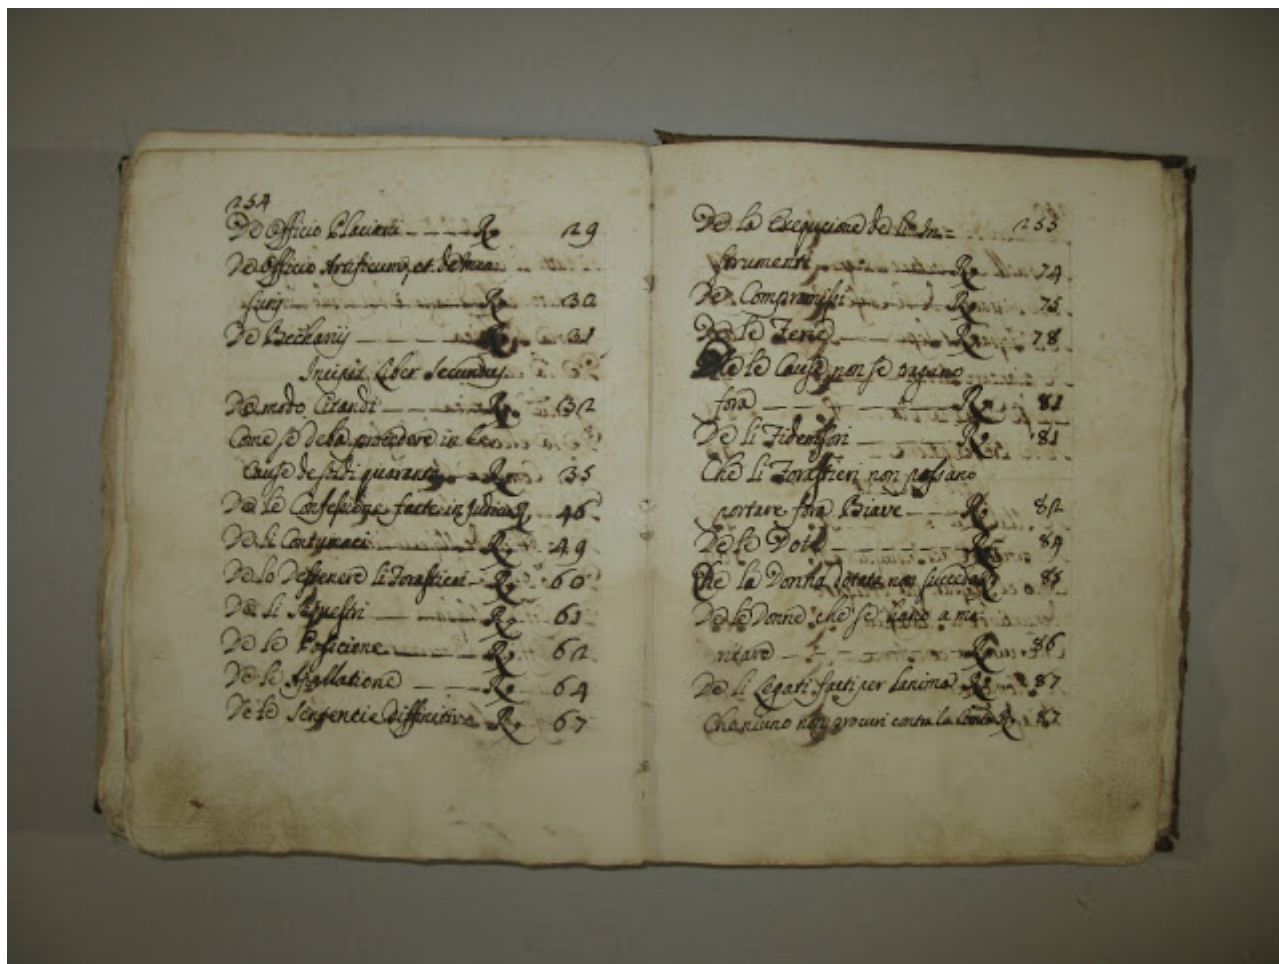 254
De Officio Placiarii R. 29
De Officio Artificum, et de men
suris R. 30
De Beckarijs R. 31
Incipit Liber Secundus
De modo Citandi R. 32
Come se deba procedere in le
Cause de soldi quaranta R. 35
De le Confessione facte in Judicio R. 46
De li Contumaci R. 49
De lo Dettenere li Forastieri R. 60
De li Sequestri R. 61
De le Posicione R. 62
De le Apallatione R. 64
De le Sentencie diffinitive R. 67
De la Exequcione de li In= 255
strumenti R. 74
De Compromissi R. 75
De le Ferie R. 78
Che le Cause non se tragano
fora R. 81
De li Fideiussori R. 81
Che li Forastieri non possano
portare fora Biave R. 82
De le Dote R. 84
Che la Donna dotata non succeda R. 85
De le Donne che se hano a ma
ritare R. 86
De li Legati facti per lanima R. 87
Che niuno non procuri contra la R. 87